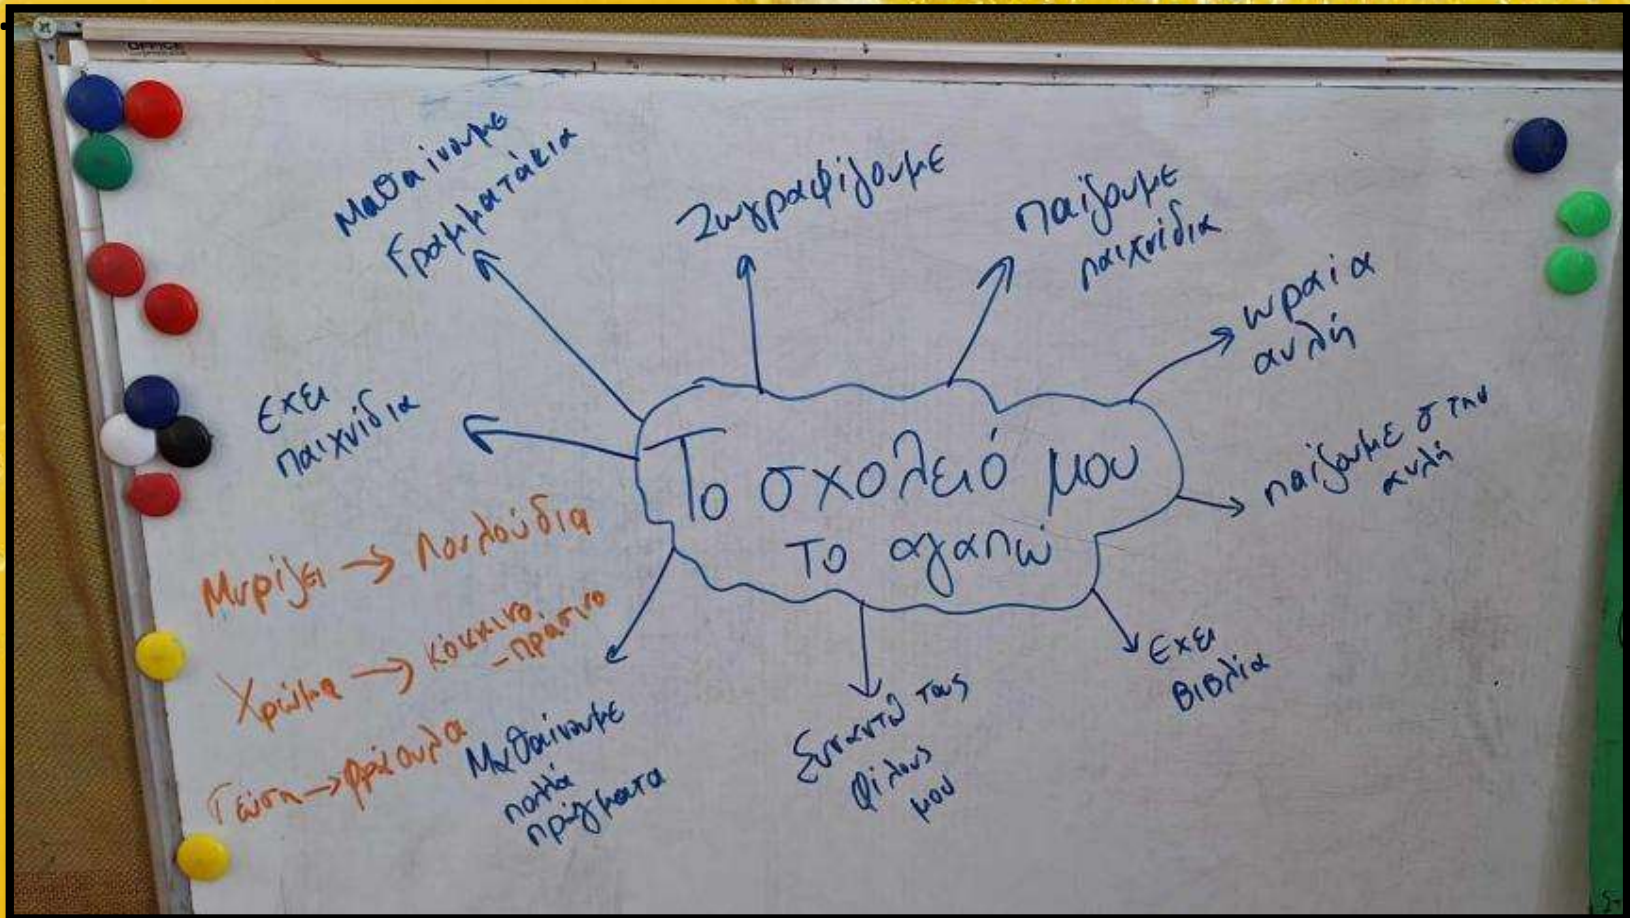 OFFICE
Μαθαίνουμε
Γραμματάκια
Ζωγραφίζουμε
παίζουμε
παιχνίδια
ωραία
αυλή
παίζουμε στην
αυλή
εχει
βιβλία
Συναντώ τους
φίλους
μου
Μαθαίνουμε
πολλά
πράγματα
εχει
παιχνίδια
Το σχολειό μου
το αγαπώ
Μυρίζει → Λουλούδια
Χρώμα → κόκκινο
- πράσινο
Γεύση → φράουλα